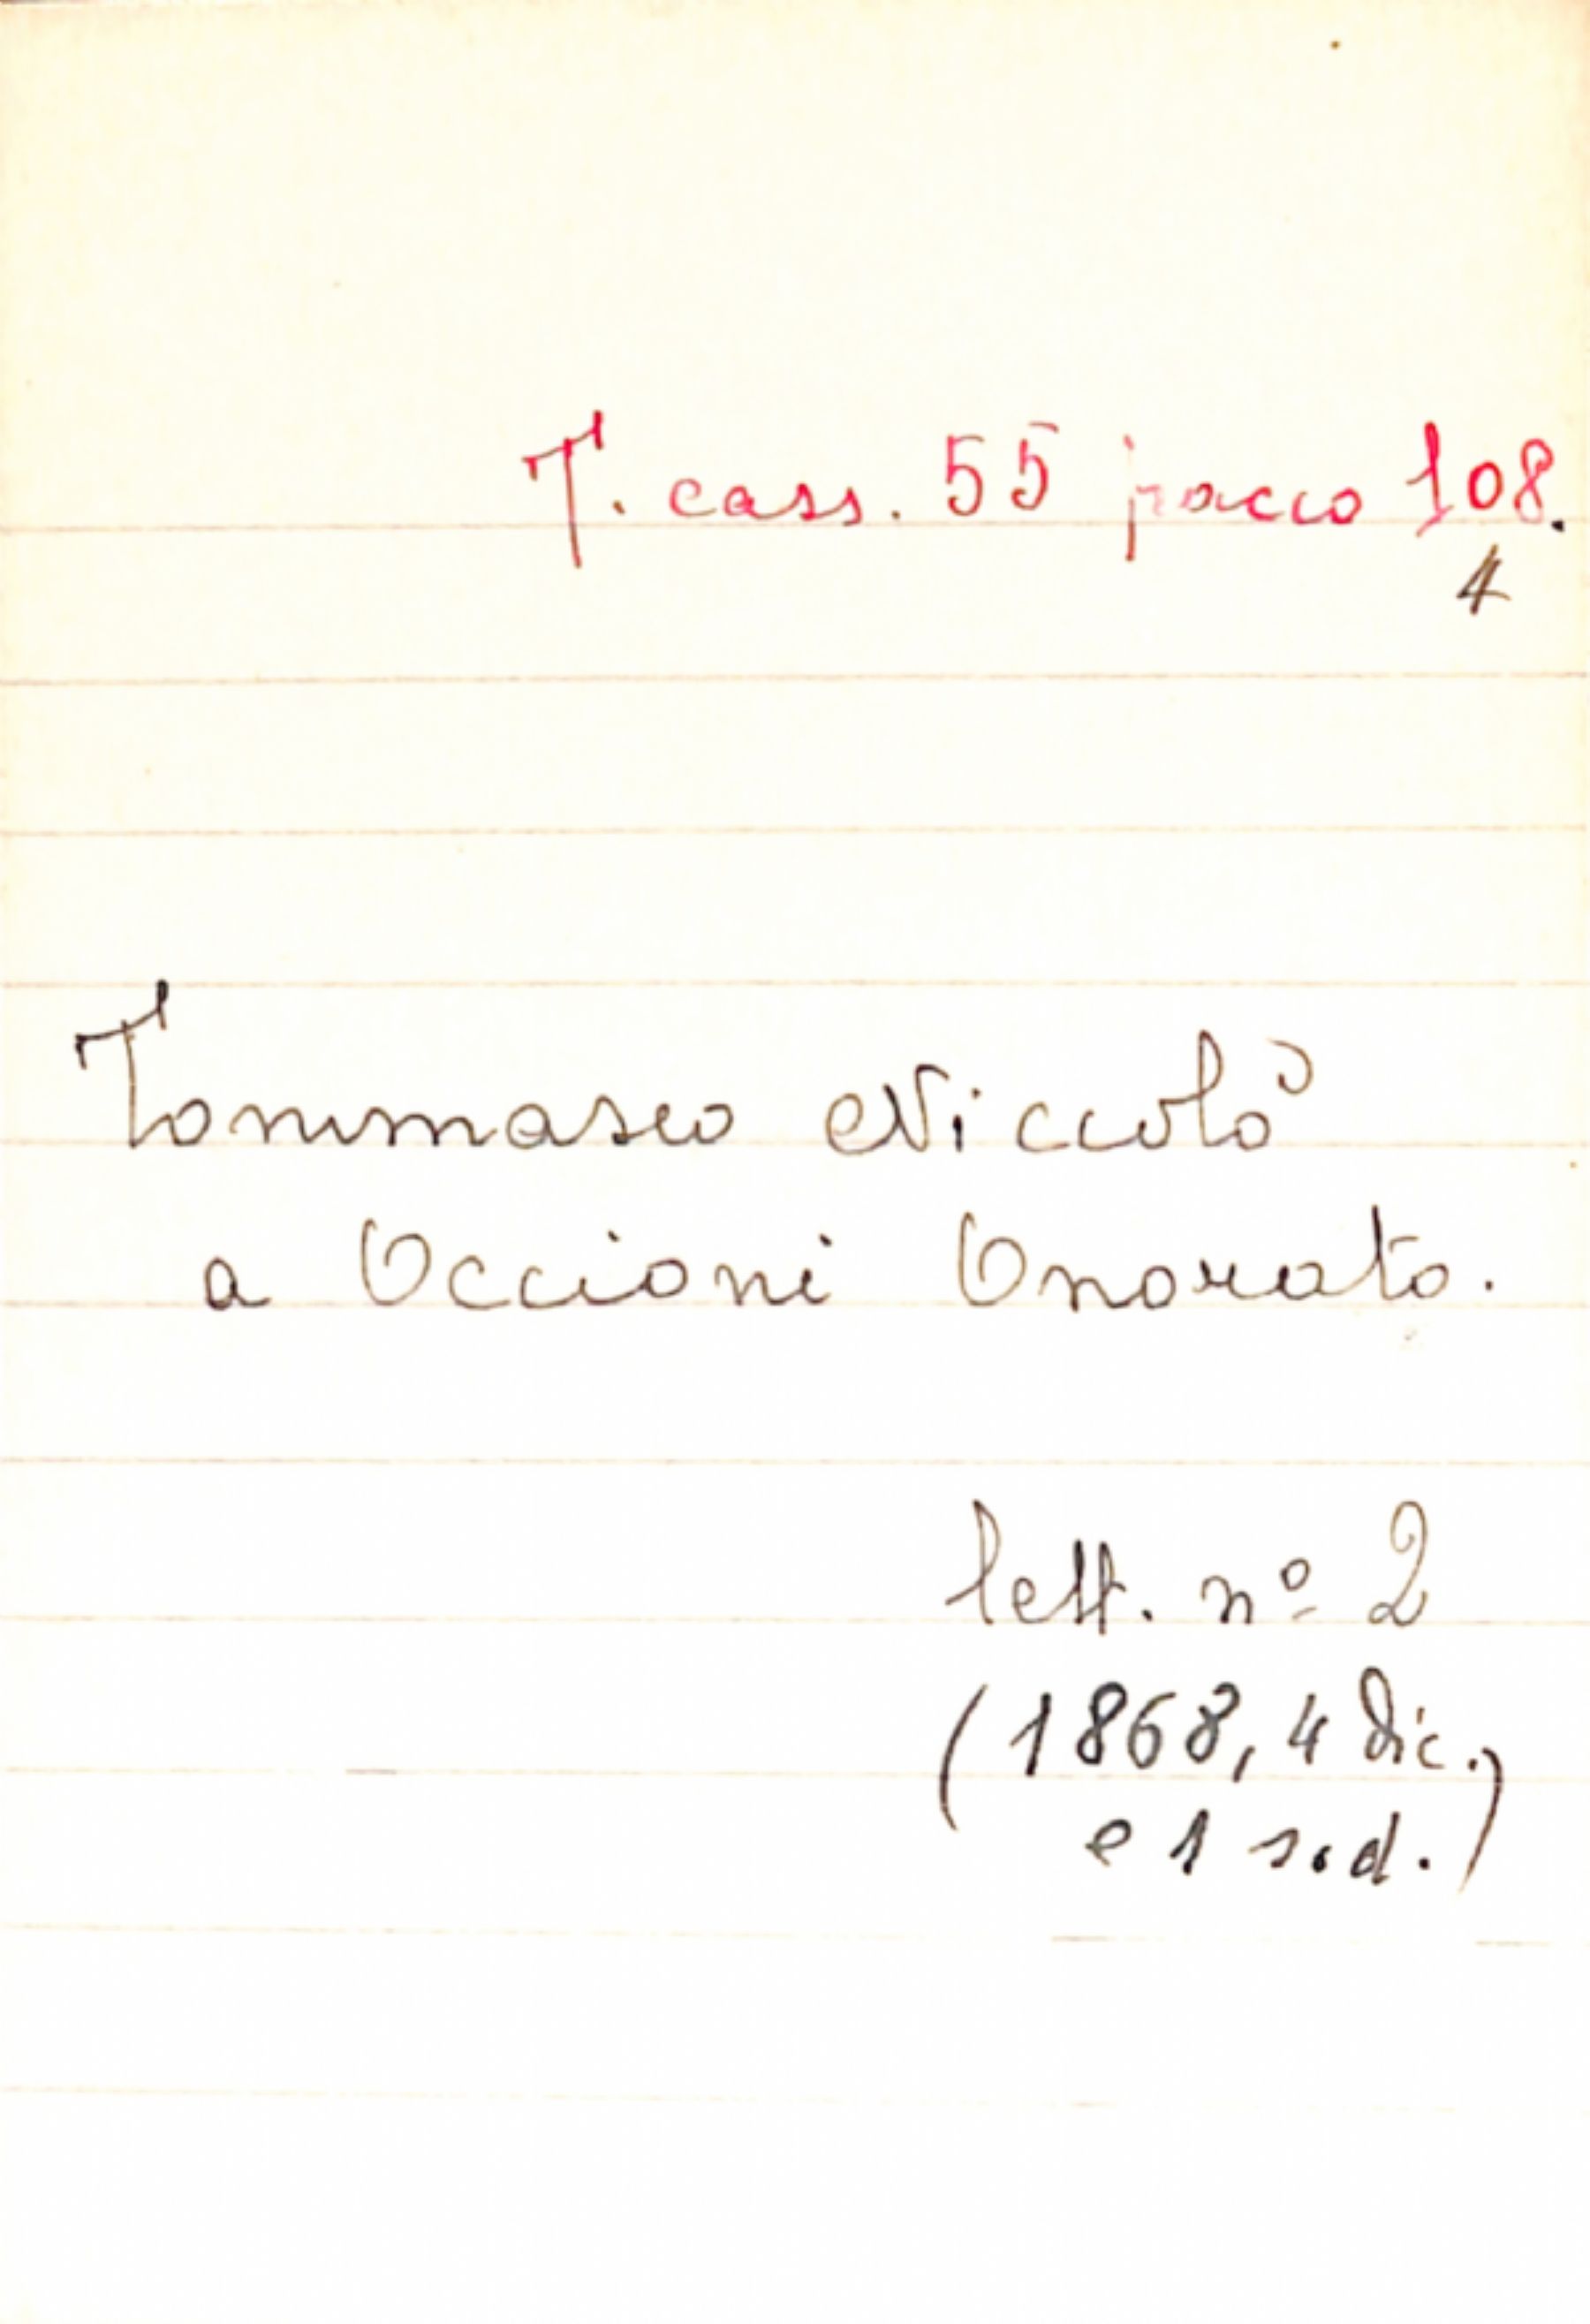 T. cass. 55 pacco 108.
4
Tommaseo Niccolò
a Occioni Onorato.
lett. nº 2
(1868, 4 dic.
e 1 s.d.)